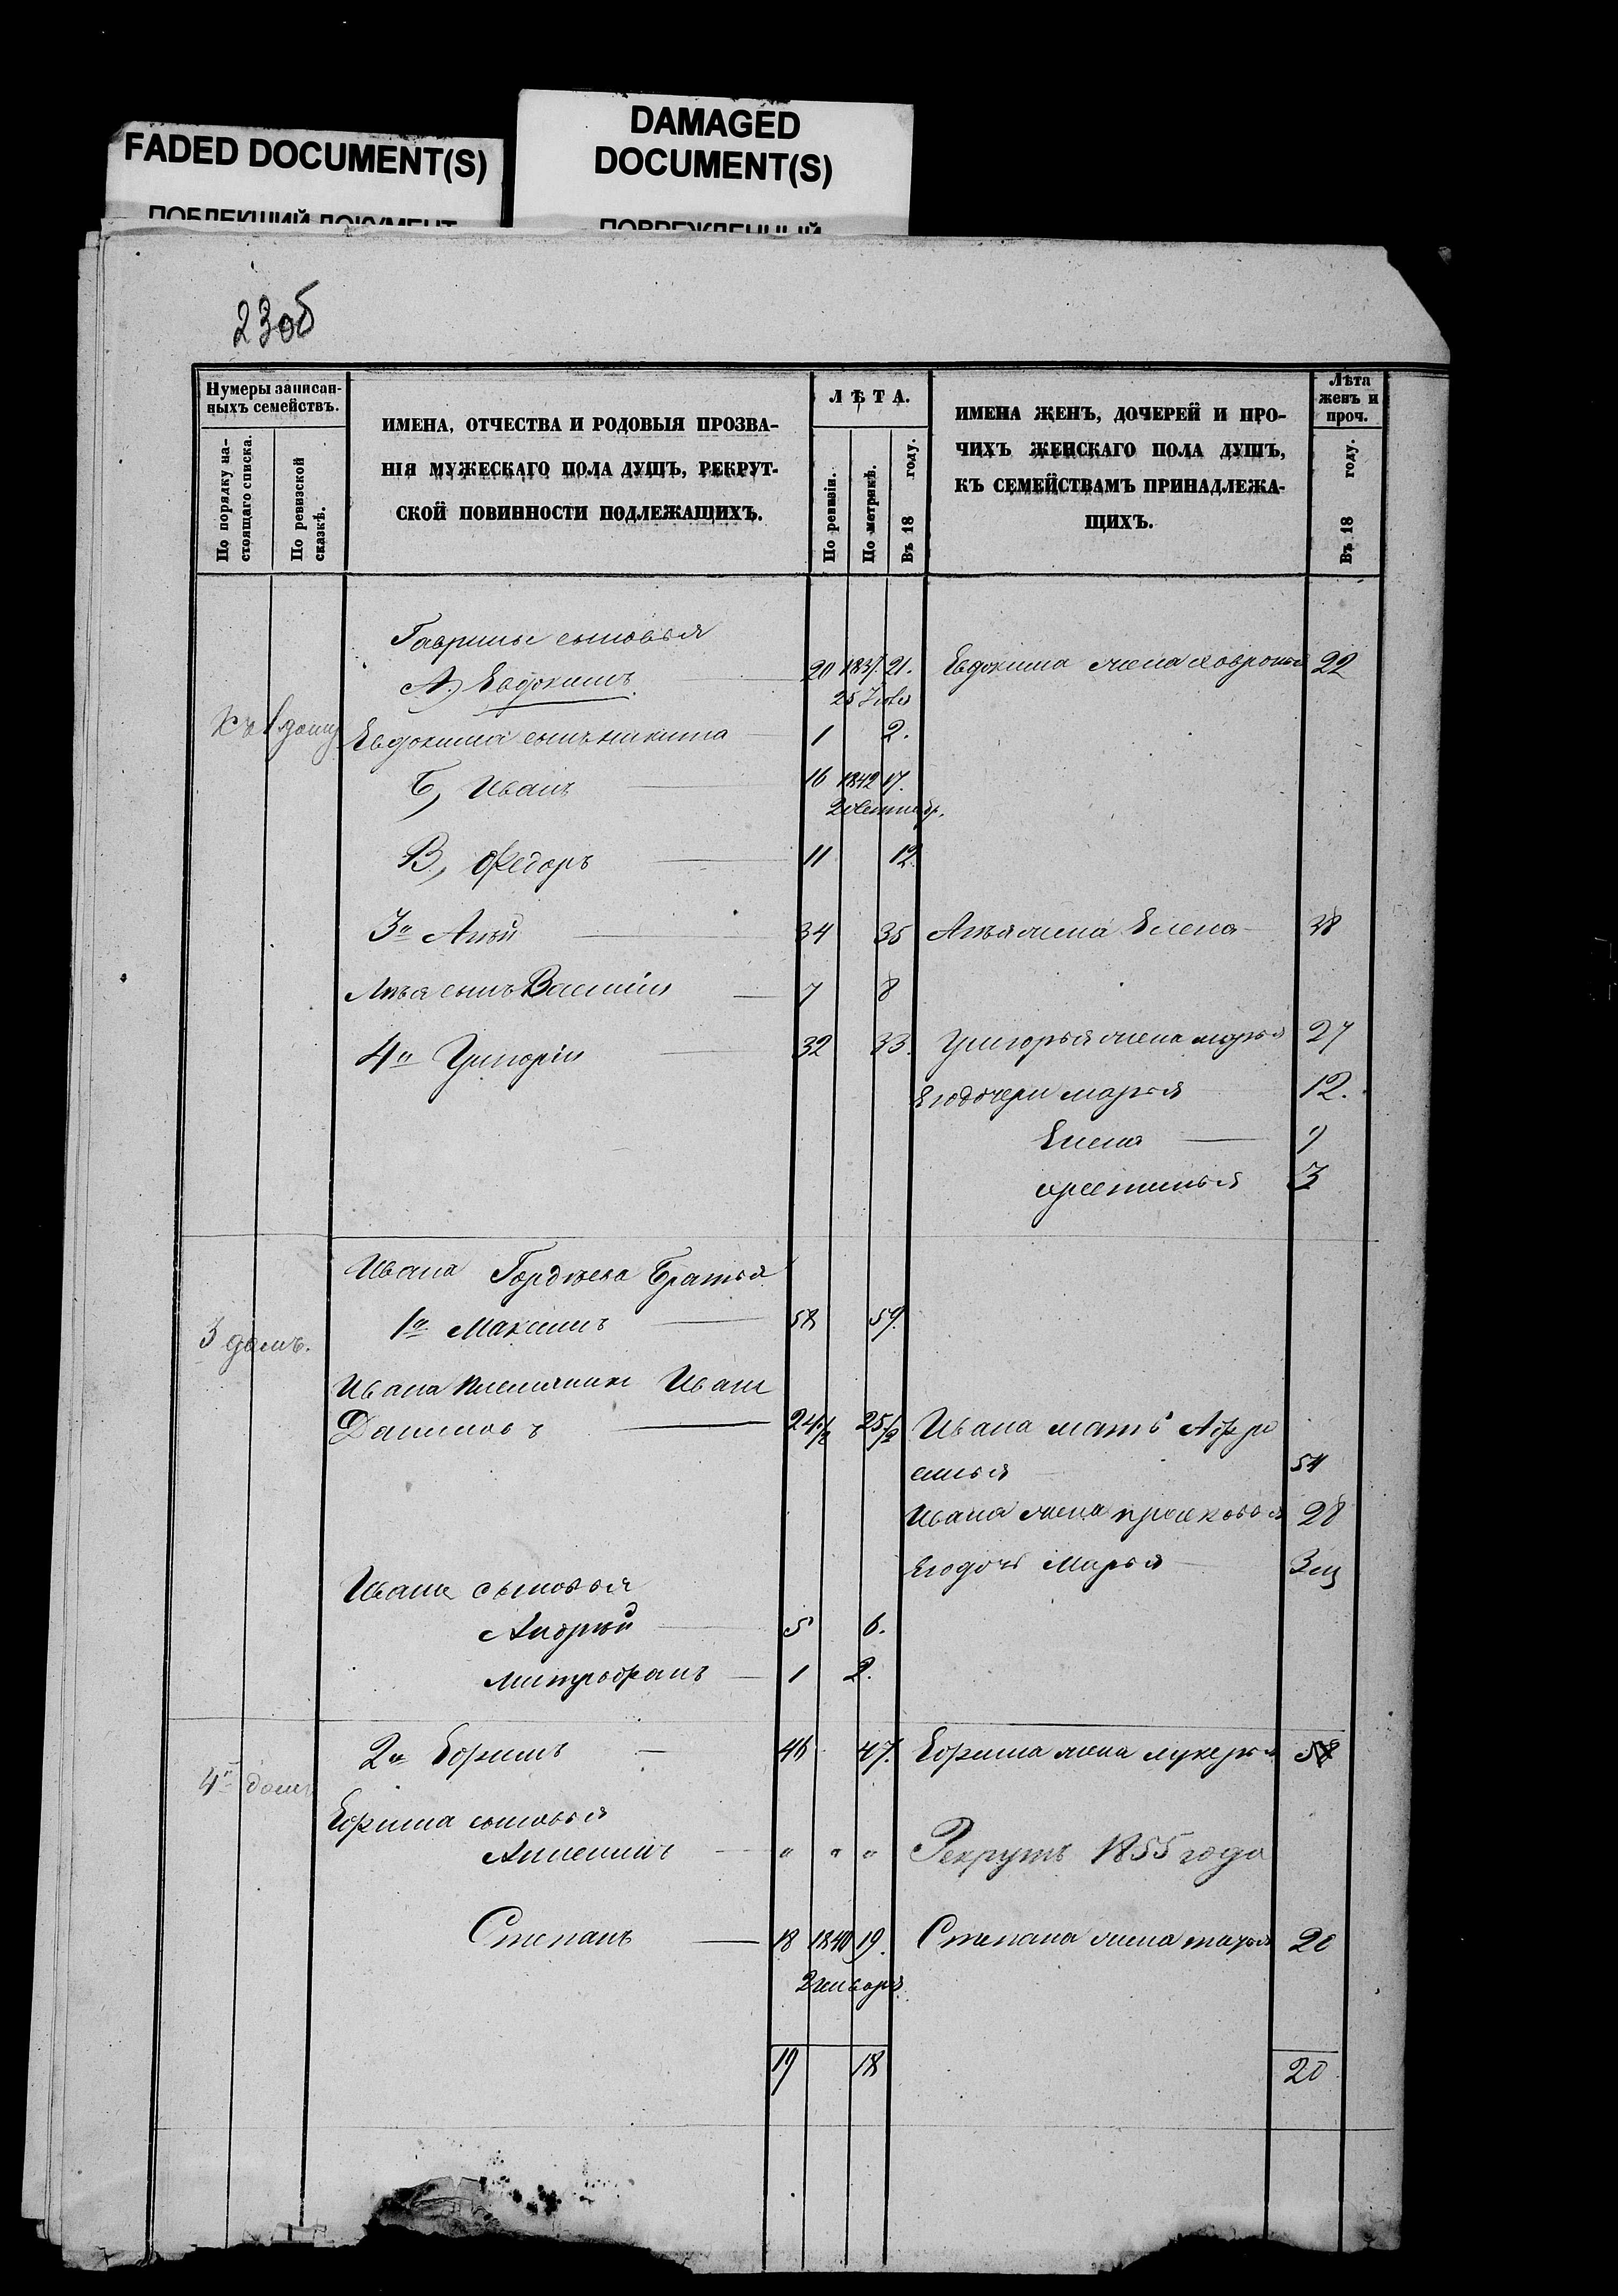 FADED DOCUMENT(S)
ПОБЛЕКШИЙ ДОКУМЕНТ
DAMAGED
DOCUMENT(S)
ПОВРЕЖДЕННЫЙ
23об
Нумеры записан-
ныхъ семействъ.
По порядку на-
стоящаго списка.
По ревизской
сказкѣ.
ИМЕНА, ОТЧЕСТВА И РОДОВЫЯ ПРОЗВА-
НІЯ МУЖЕСКАГО ПОЛА ДУШЪ, РЕКРУТ-
СКОЙ ПОВИННОСТИ ПОДЛЕЖАЩИХЪ.
ЛѢТА.
По ревизіи.
По метрикѣ.
Въ 18 году.
ИМЕНА ЖЕНЪ, ДОЧЕРЕЙ И ПРО-
ЧИХЪ ЖЕНСКАГО ПОЛА ДУШЪ,
КЪ СЕМЕЙСТВАМЪ ПРИНАДЛЕЖА-
ЩИХЪ.
Лѣта
женъ и
проч.
Въ 18 году.
Гаврилы сыновья
А, Евдокимъ 20 1837 21. Евдокима жена Хавронья 22
25 Іюля
Къ 1 дому Евдокима сынъ никита 1 2.
Б, Иванъ 16 1842 17.
Сентябр.
В, Федоръ 11 12.
3й 34 35 жена Елена 38
сынъ Василій 7 8
4й Григорій 32 33. Григорья жена марья 27
Его дочери марья 12.
Елена 7
3
Ивана Гордѣева Братья
3 домъ. 1й Максимъ 58 59.
Ивана племяникъ Иванъ
Даниловъ 24 1/2 25 1/2 Ивана мать Афро
синья 54
Ивана жена прасковья 28
Его дочь Марья
Ивана сыновья
Андрѣй 5 6.
Митрофанъ 1 2.
4й домъ 2й Ефимъ 46 47. Ефима жена лукерья
Ефима сыновья
" " " Рекрутъ 1855 года
Степанъ 18 1840 19. Степана жена марья 20
генваря
19 18 20